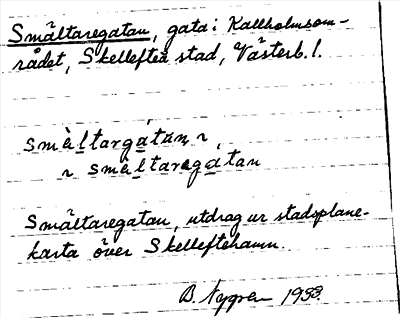 Smältaregatan, gata i Kallholmsom-
rådet, Skellefteå stad, Västerb. l.
smältargatan, ~
~ smältaregatan
Smältaregatan, utdrag ur stadsplane-
karta över Skelleftehamn.
B. Nygren